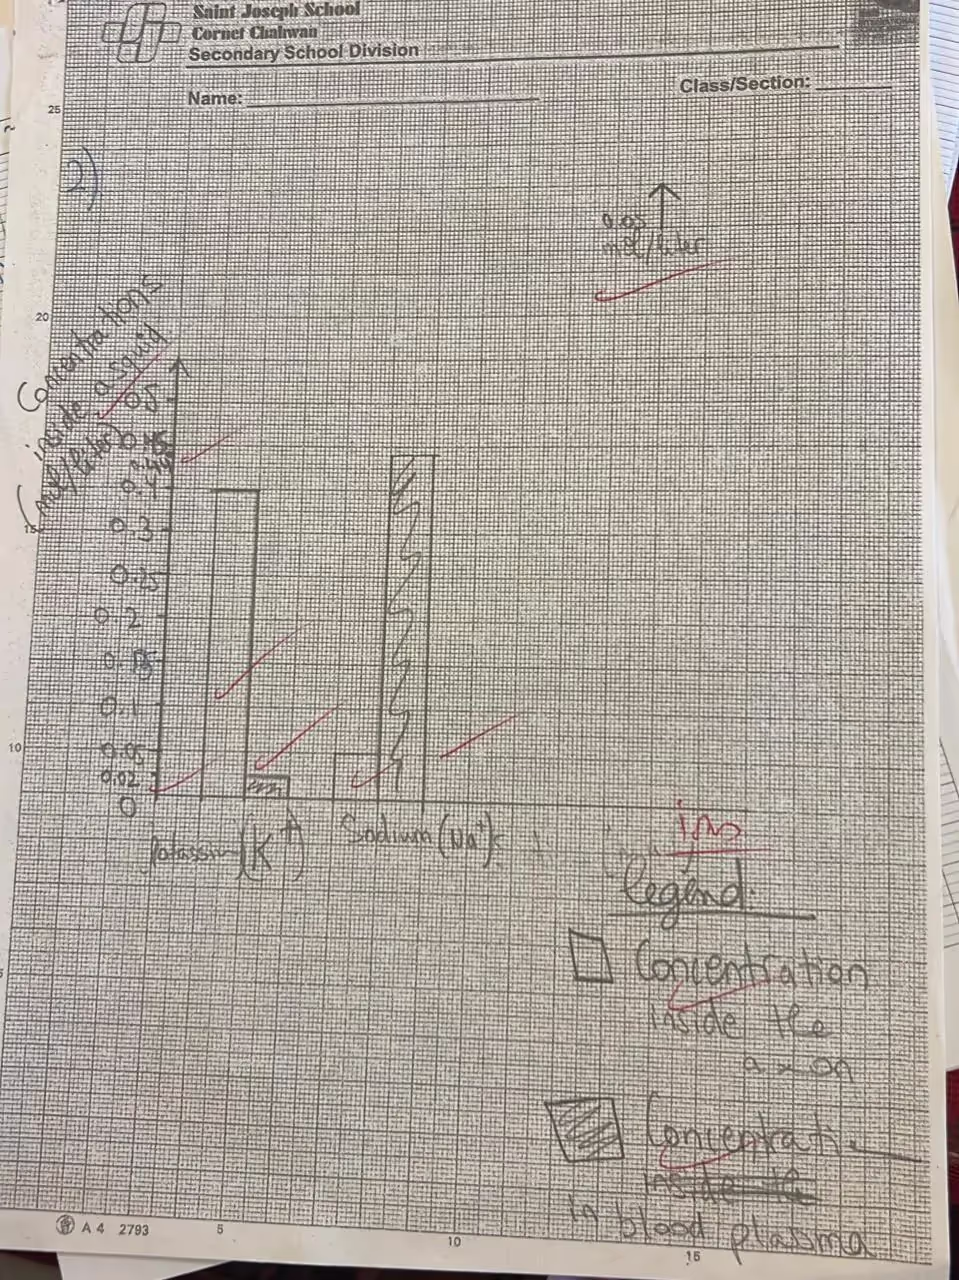 Saint Joseph School
Cornet Chahwan
Secondary School Division
Name:
Class/Section:
25
2)
mol/liter
20
Concentrations
inside a squid
(mol/liter)
0.5
0.45
0.4
15
0.3
0.25
0.2
0.15
0.1
10
0.05
0.02
0
Potassium (K+)
Sodium (Na+)
legend:
Concentration
inside the
axon
Concentration
inside the
in blood plasma
A4 2793
5
10
15